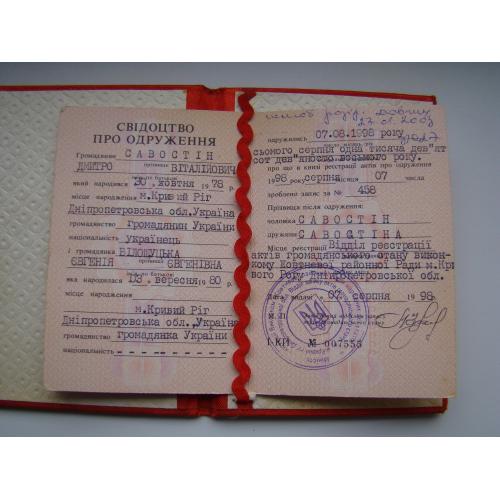 СВІДОЦТВО
ПРО ОДРУЖЕННЯ
Громадянин САВОСТІН
ДМИТРО ВІТАЛІЙОВИЧ
який народився 30 жовтня 1978
місце народження м.Кривий Ріг
Дніпропетровська обл.Україна
громадянство Громадянин України
національність Українець
і громадянка
ЄВГЕНІЯ ЄВГЕНІВНА
яка народилася вересня 1980
місце народження
м.Кривий Ріг
Дніпропетровська обл.,Україна
громадянство Громадянка України
національність
одружились 07.08.1998 року
сьомого серпня одна тисяча дев"ят
сот дев"яносто восьмого року.
про що в книзі реєстрації актів про одруження
1998 року серпня місяця 07 числа
зроблено запис за № 458
Прізвища після одруження:
чоловіка САВОСТІН
дружини САВОСТІНА
Місце реєстрації Відділ реєстрації
актів громадянського стану викон-
кому Жовтневої районної Ради м.Кри
вого Рогу Дніпропетровської обл.
Дата видачі 07 серпня 1998
М. П.
І-КИ № 007555